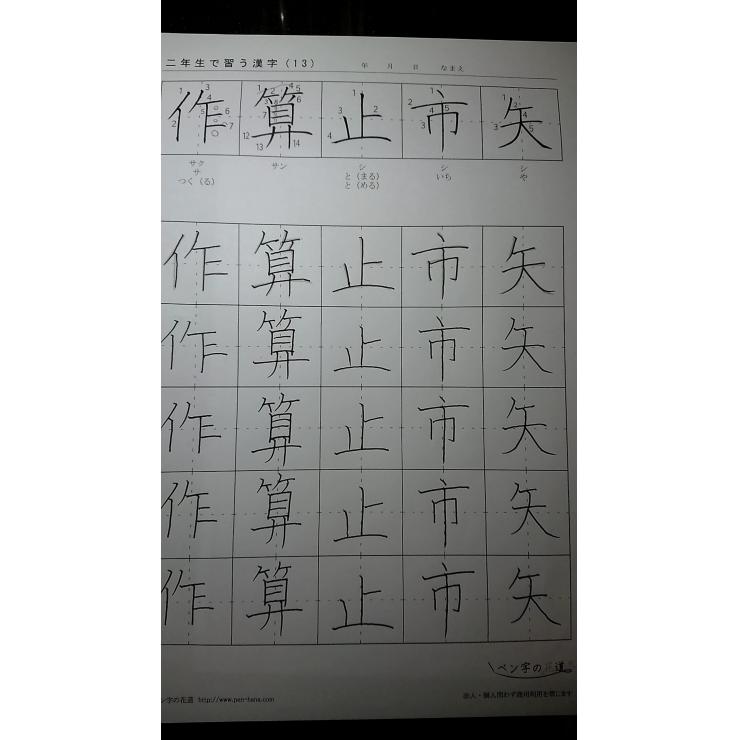 二年生で習う漢字（13） 年 月 日 なまえ
作 算 止 市 矢
サク サン シ シ シ
サ と（まる） いち や
つく（る） と（める）
作 算 止 市 矢
作 算 止 市 矢
作 算 止 市 矢
作 算 止 市 矢
作 算 止 市 矢
ペン字の花道
ン字の花道 http://www.pen-hana.com 法人・個人問わず商用利用を禁じます